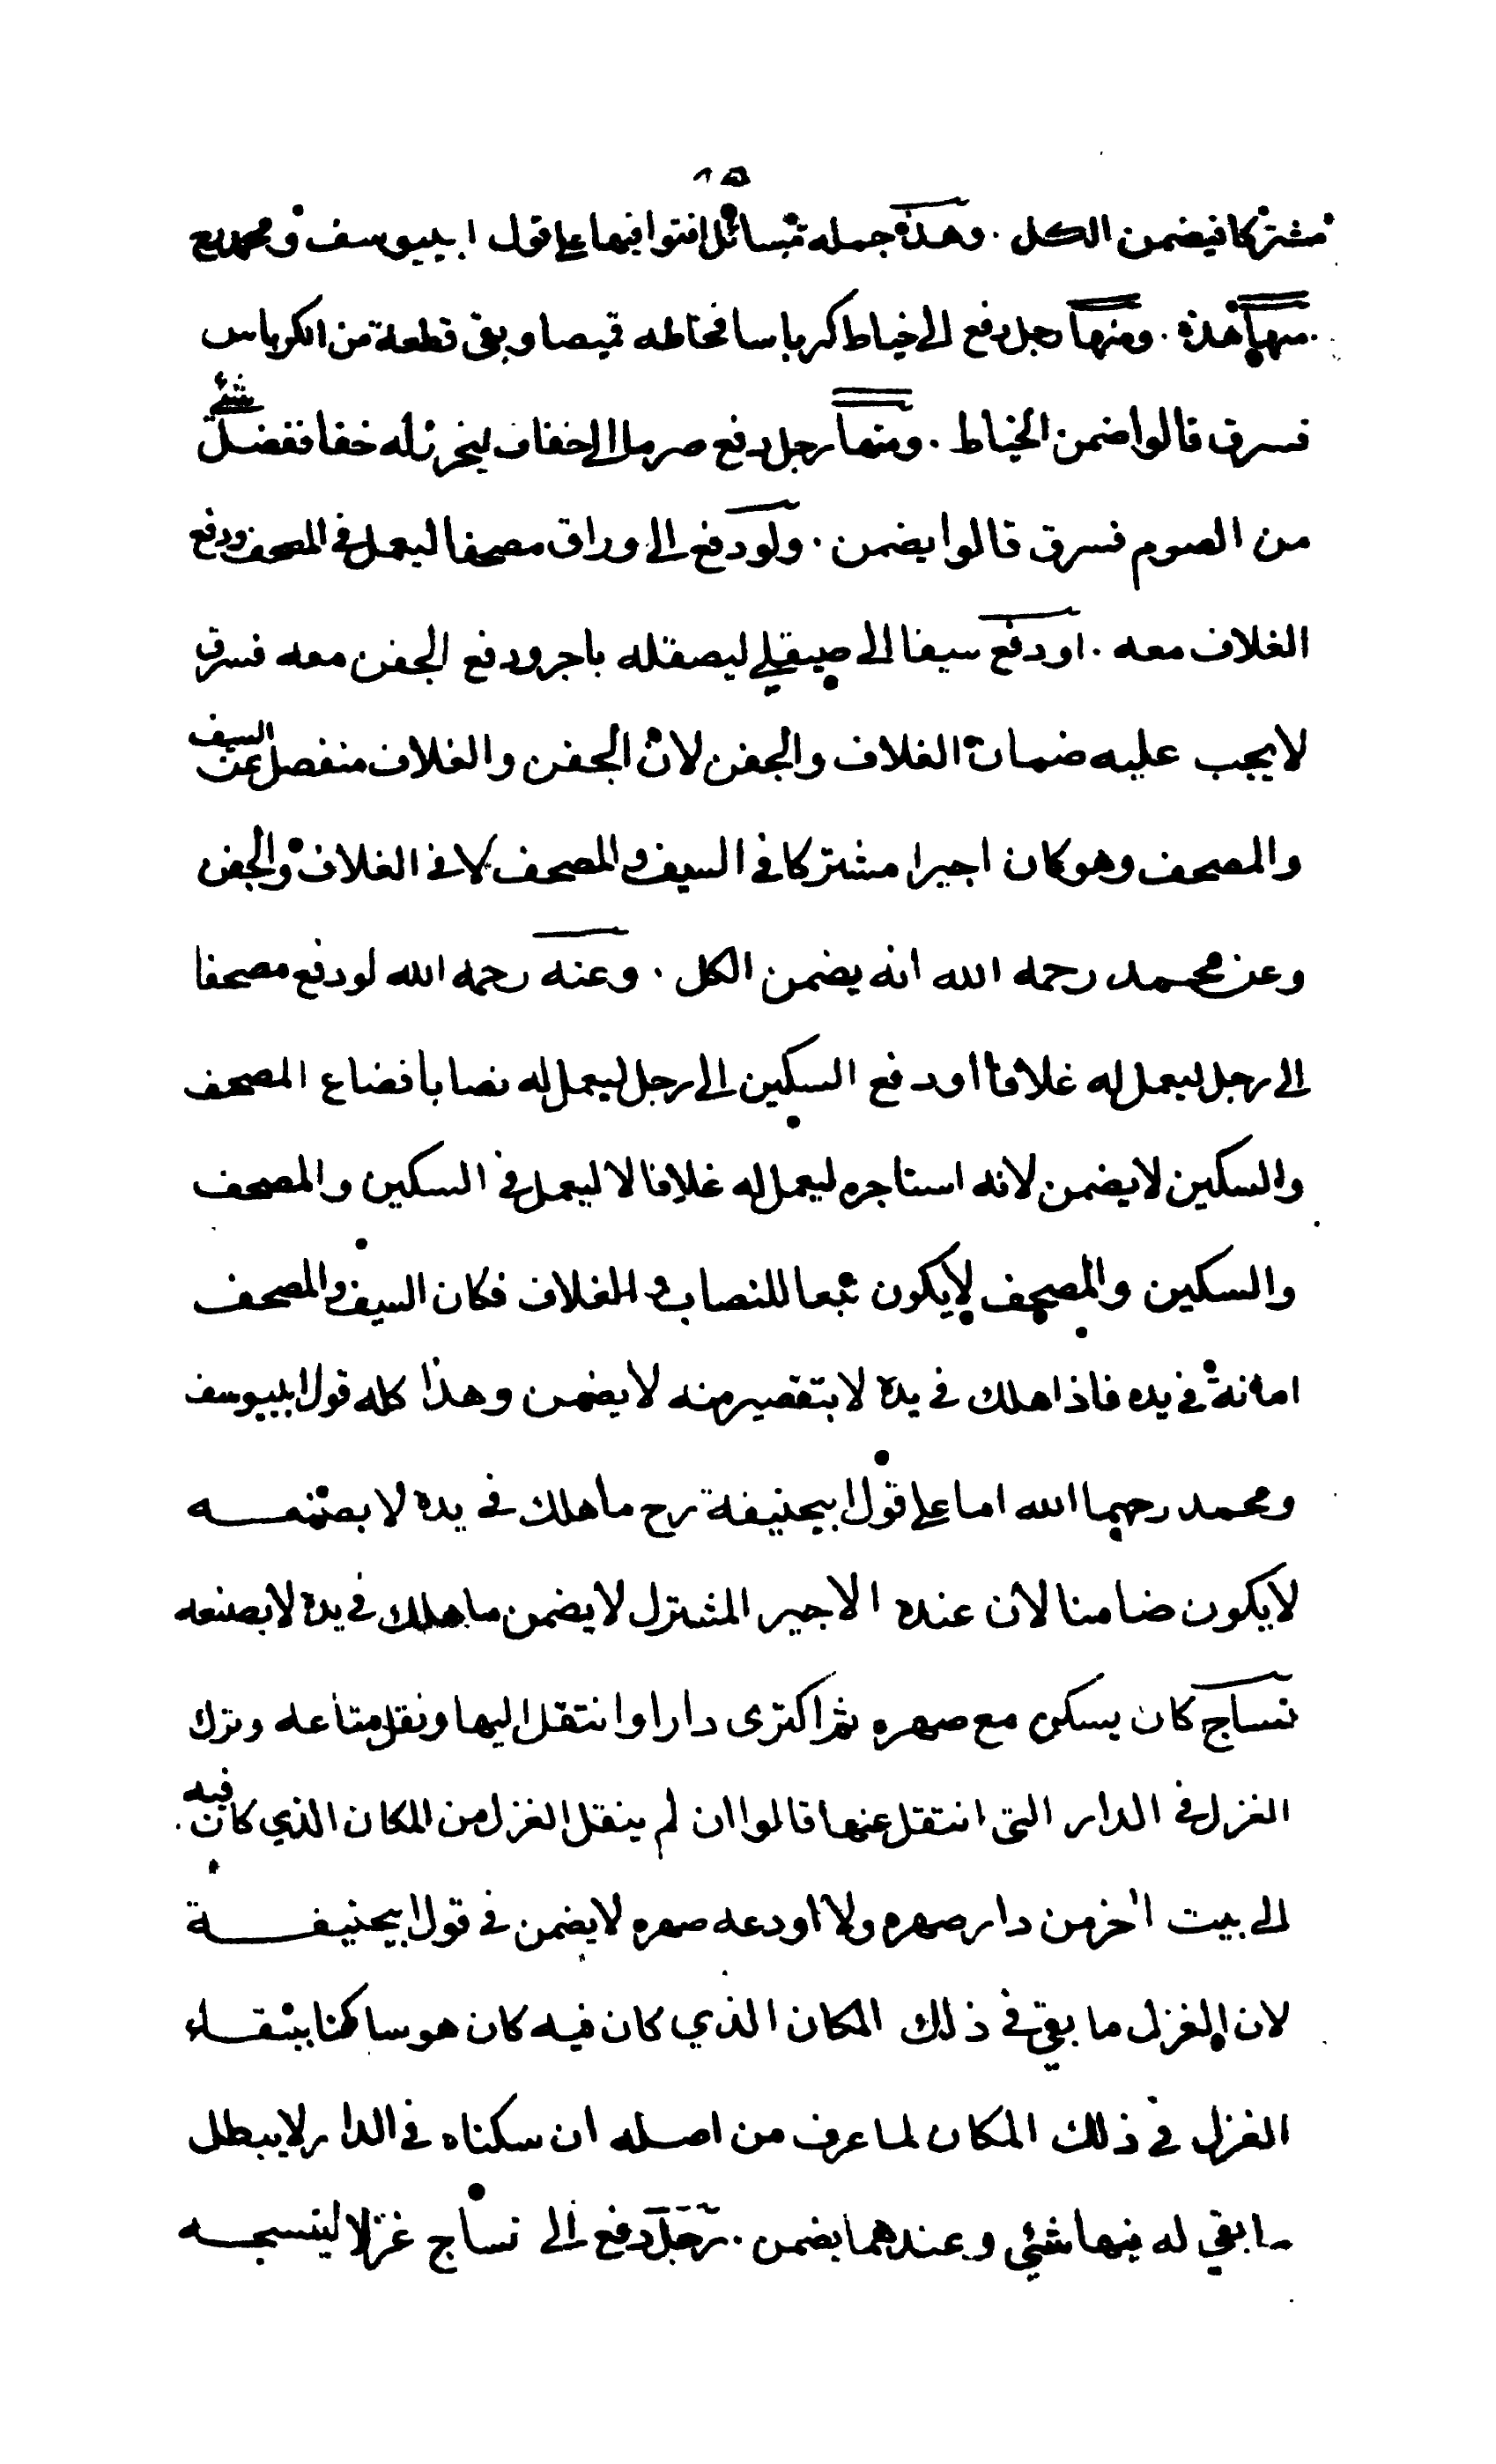 مشتركا فيضمن الكل . وهذه جملة مسائل افتوا فيها على قول ابييوسف ومحمد رح
منها هذه . ومنها رجل دفع الى خياط كرباسا فخاطه قميصا وبقى قطعة من الكرباس
فسرق قالوا ضمن الخياط . ومنها رجل دفع صرما الى خفاف ليخرز له خفا ففضل شئ
من الصرم فسرق قالوا يضمن . ولو دفع الى وراق مصحفا ليعمل فى المصحف ودفع
الغلاف معه . او دفع سيفا الى صيقلي ليصقله باجر ودفع الجفن معه فسرق
لا يجب عليه ضمان الغلاف والجفن لان الجفن والغلاف منفصل عن السيف
والمصحف وهو كان اجيرا مشتركا فى السيف والمصحف لا فى الغلاف والجفن
وعن محمد رحمه الله انه يضمن الكل . وعنه رحمه الله لو دفع مصحفا
الى رجل ليعمل له غلافا او دفع السكين الى رجل ليعمل له نصابا فضاع المصحف
والسكين لا يضمن لانه استاجره ليعمل له غلافا لا ليعمل فى السكين والمصحف
والسكين والمصحف لا يكون تبعا للنصاب والغلاف فكان السيف والمصحف
امانة فى يده فاذا هلك فى يده لا بتقصير منه لا يضمن وهذا كله قول ابييوسف
ومحمد رحهما الله اما على قول ابيحنيفة رح ما هلك فى يده لا بصنعه
لا يكون ضامنا لان عنده الاجير المشترك لا يضمن ما هلك فى يده لا بصنعه
نساج كان يسكن مع صهره ثم اكترى دارا وانتقل اليها ونقل متاعه وترك
الغزل فى الدار التى انتقل عنها قالوا ان لم ينقل الغزل من المكان الذي كان فيه
الى بيت اخر من دار صهره ولا اودعه صهره لا يضمن فى قول ابيحنيفة
لان الغزل ما بقي فى ذلك المكان الذي كان فيه كان هو ساكنا ببقاء
الغزل فى ذلك المكان لما عرف من اصله ان سكناه فى الدار لا يبطل
ما بقي له فيها شئي وعندهما يضمن . رجل دفع الى نساج غزلا لينسجه